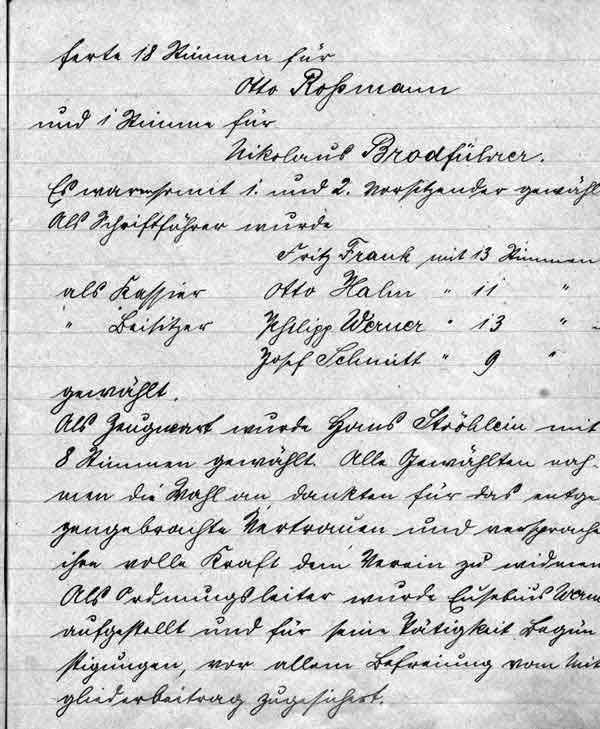 ferte 18 Stimmen für
Otto Roßmann
und 1 Stimme für
Nikolaus Brodführer.
Es waren somit 1. und 2. Vorsitzender gewähl
Als Schriftführer wurde
Fritz Frank mit 13 Stimmen
als Kassier Otto Hahn " 11 "
" Beisitzer Philipp Werner " 13 "
Josef Schmitt " 9 "
gewählt.
Als Zeugwart wurde Hans Ströhlein mit
8 Stimmen gewählt. Alle Gewählten nah-
men die Wahl an, dankten für das entge
gengebrachte Vertrauen und versprache
ihre volle Kraft dem Verein zu widmen
Als Ordnungsleiter wurde Eusebius Wern
aufgestellt und für seine Tätigkeit Begün
stigungen, vor allem Befreiung vom Mit
gliederbeitrag zugesichert.